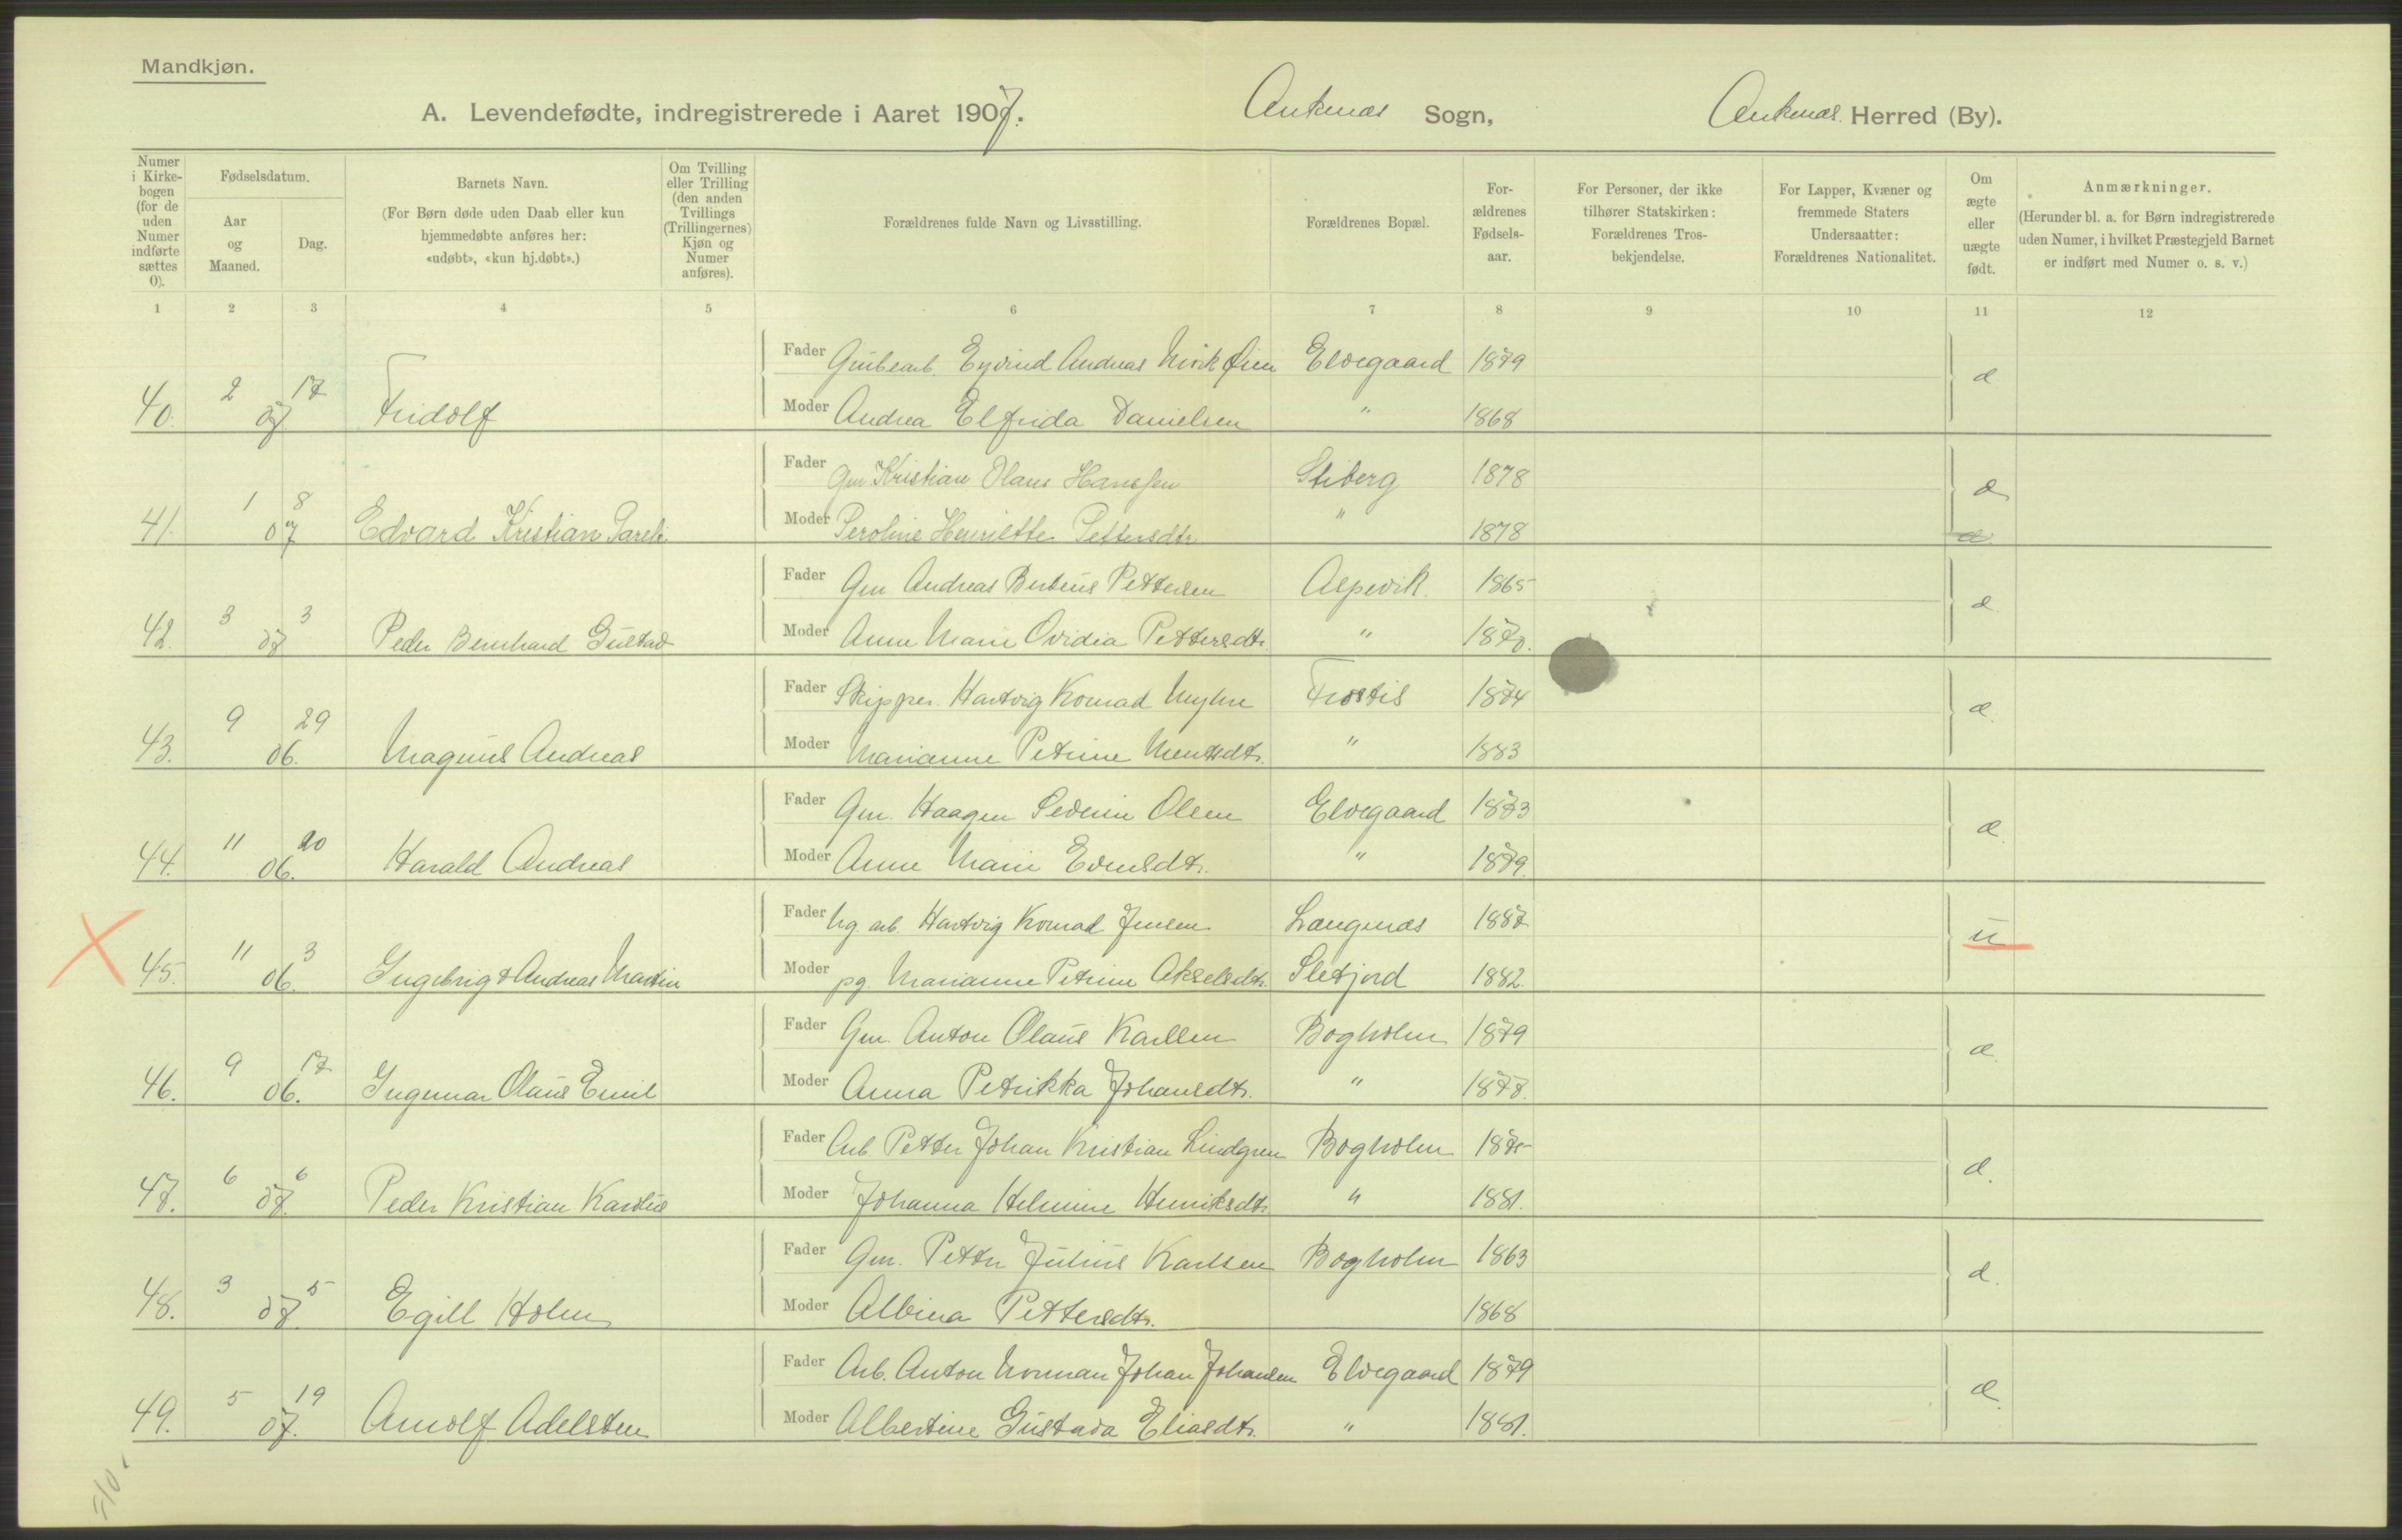 Mandkjøn.
A. Levendefødte, indregistrerede i Aaret 1907. Ankenæs Sogn, Ankenæs Herred (By).
Numer i Kirkebogen (for de uden Numer indførte sættes 0).
Fødselsdatum.
Aar og Maaned.
Dag.
Barnets Navn.
(For Børn døde uden Daab eller kun hjemmedøbte anføres her: «udøbt», «kun hj.døbt».)
Om Tvilling eller Trilling (den anden Tvillings (Trillingernes) Kjøn og Numer anføres).
Forældrenes fulde Navn og Livsstilling.
Forældrenes Bopæl.
Forældrenes Fødselsaar.
For Personer, der ikke tilhører Statskirken: Forældrenes Trosbekjendelse.
For Lapper, Kvæner og fremmede Staters Undersaatter: Forældrenes Nationalitet.
Om ægte eller uægte født.
Anmærkninger.
(Herunder bl. a. for Børn indregistrerede uden Numer, i hvilket Præstegjeld Barnet er indført med Numer o. s. v.)
1 2 3 4 5 6 7 8 9 10 11 12
Fader Grubearb. Eyvind Andreas Elvegaard 1879
40. 2 07 17 Fridolf Moder Andrea Elfrida Danielsen " 1868 æ
Fader Gm Kristian Olaus Hanssen Stiberg 1878
41. 1 07 8 Edvard Kristian Moder Peroline Henriette Pettersdtr " 1878 æ
Fader Gm Andreas Berteus Pettersen Aspevik. 1865
42. 3 07 3 Peder Bernhard Gustav Moder Anne Marie Ovidia Pettersdtr. " 1870. æ.
Fader Skipper. Hartvig Konrad Myhre Frostis 1874
43. 9 06. 29 Magnus Andreas Moder Marianne Petrine Mentsdtr. " 1883 æ.
Fader Gm. Haagen Severin Olsen Elvegaard 1873
44. 11 06. 20 Harald Andreas Moder Anne Marie Evensdtr. " 1879. æ.
Fader Ug. arb. Hartvig Konrad Jensen Langenæs 1887
45. 11 06. 3 Ingebrigt Andreas Martin Moder pg. Marianne Petrine Akselsdtr. Sletjord 1882. u
Fader Gm. Anton Olaus Karlsen Bogholm 1879
46. 9 06. 17 Ingemar Olaus Emil Moder Anna Petrikka Johansdtr. " 1877. æ.
Fader Arb. Petter Johan Kristian Lindgren Bogholm 1875
47. 6 07. 6 Peder Kristian Karolius Moder Johanna Helmine Henriksdtr " 1881. æ.
Fader Gm. Petter Julius Karlsen Bogholm 1863
48. 3 07. 5 Egill Holm Moder Albina Pettersdtr. 1868 æ.
Fader Arb. Anton Norman Johan Johansen Elvegaard 1879
49. 5 07. 19 Arnolf Adelsten Moder Albertine Gustava Eliasdtr. " 1881. æ.